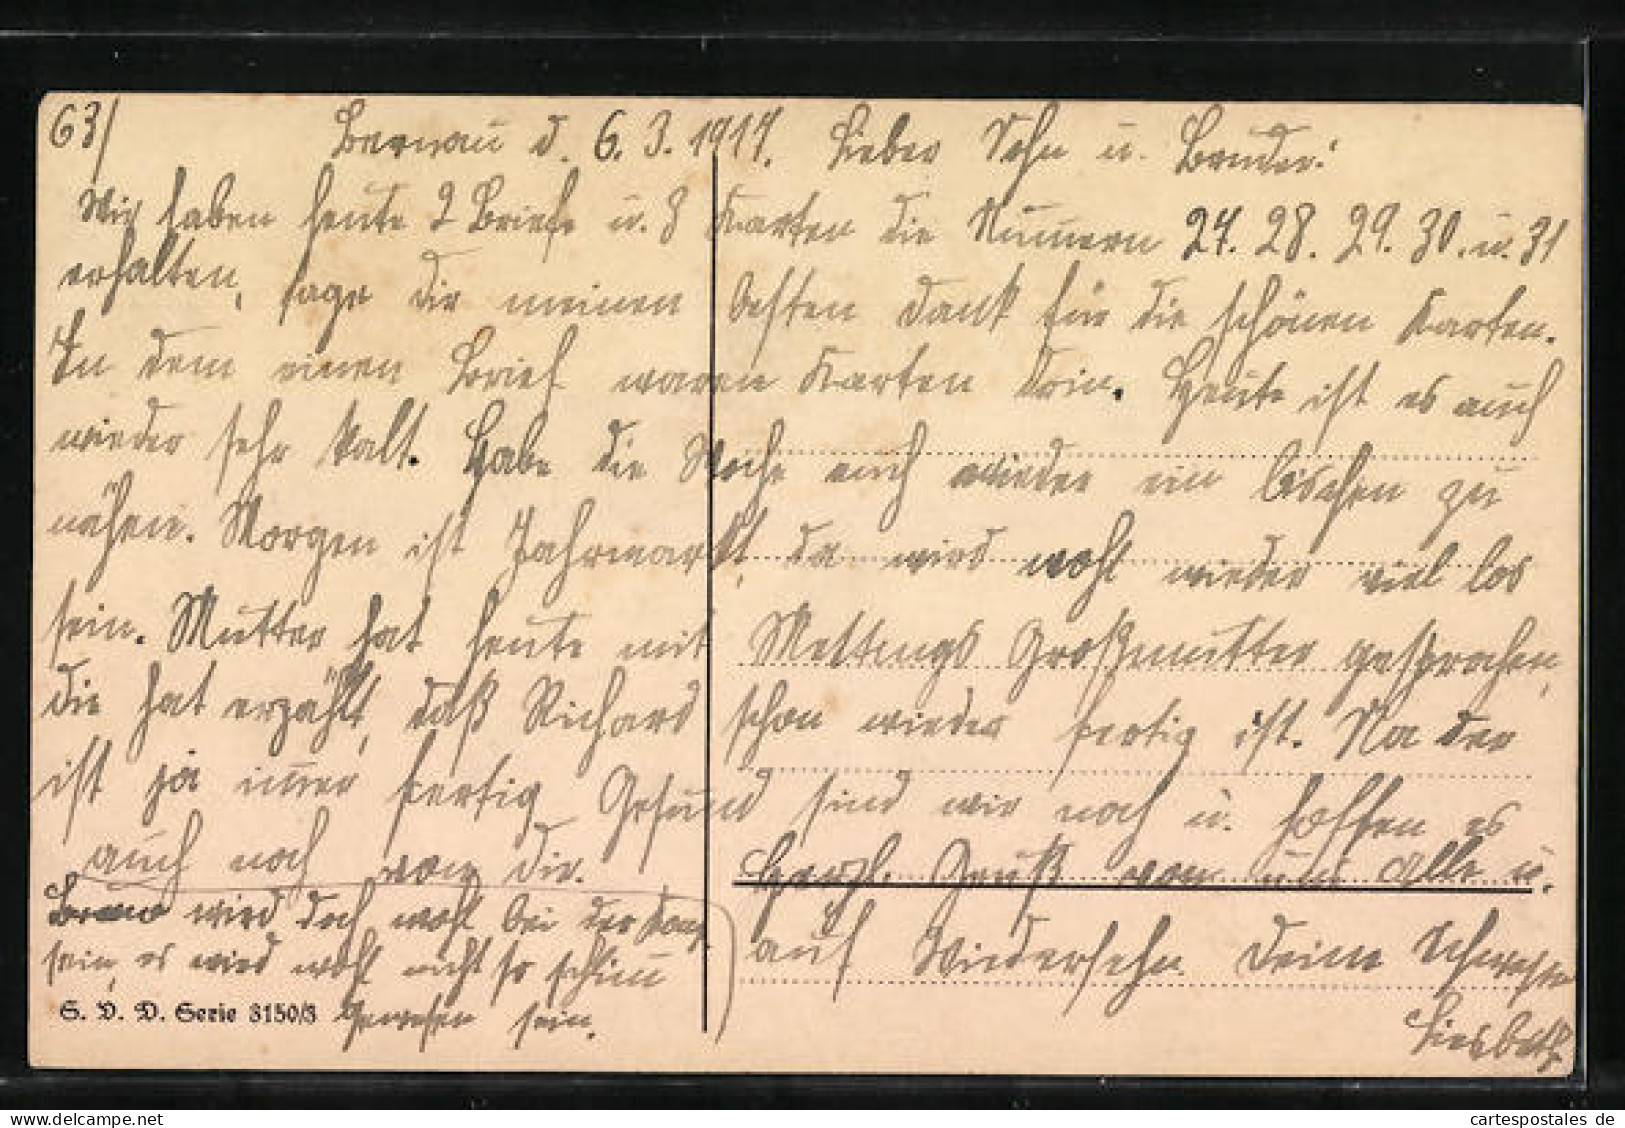 63/
Bernau d. 6.3.1917. Lieber Sohn u. Bruder!
Wir haben heute 2 Briefe u. 3 Karten die Nummern 27. 28. 29. 30. u. 31
erhalten, sage dir meinen besten Dank für die schönen Karten.
In dem einen Brief waren Karten drin. Heute ist es auch
wieder sehr kalt. Habe die Woche auch wieder ein bischen zu
nähen. Morgen ist Jahrmarkt, da wird wohl wieder viel los
sein. Mutter hat heute mit Großmutter gesprochen,
die hat erzählt, daß Richard schon wieder fertig ist. Na der
ist ja immer fertig Gesund sind wir noch u. hoffen es
auch noch von Dir. Herzl. Gruß von uns Alle u.
auf Wiedersehn Deine Schwester
Liesbeth
wird doch wohl bei der
sein, es wird wohl nicht so schlimm
gewesen sein.
S. V. D. Serie 3150/3
cartespostales de